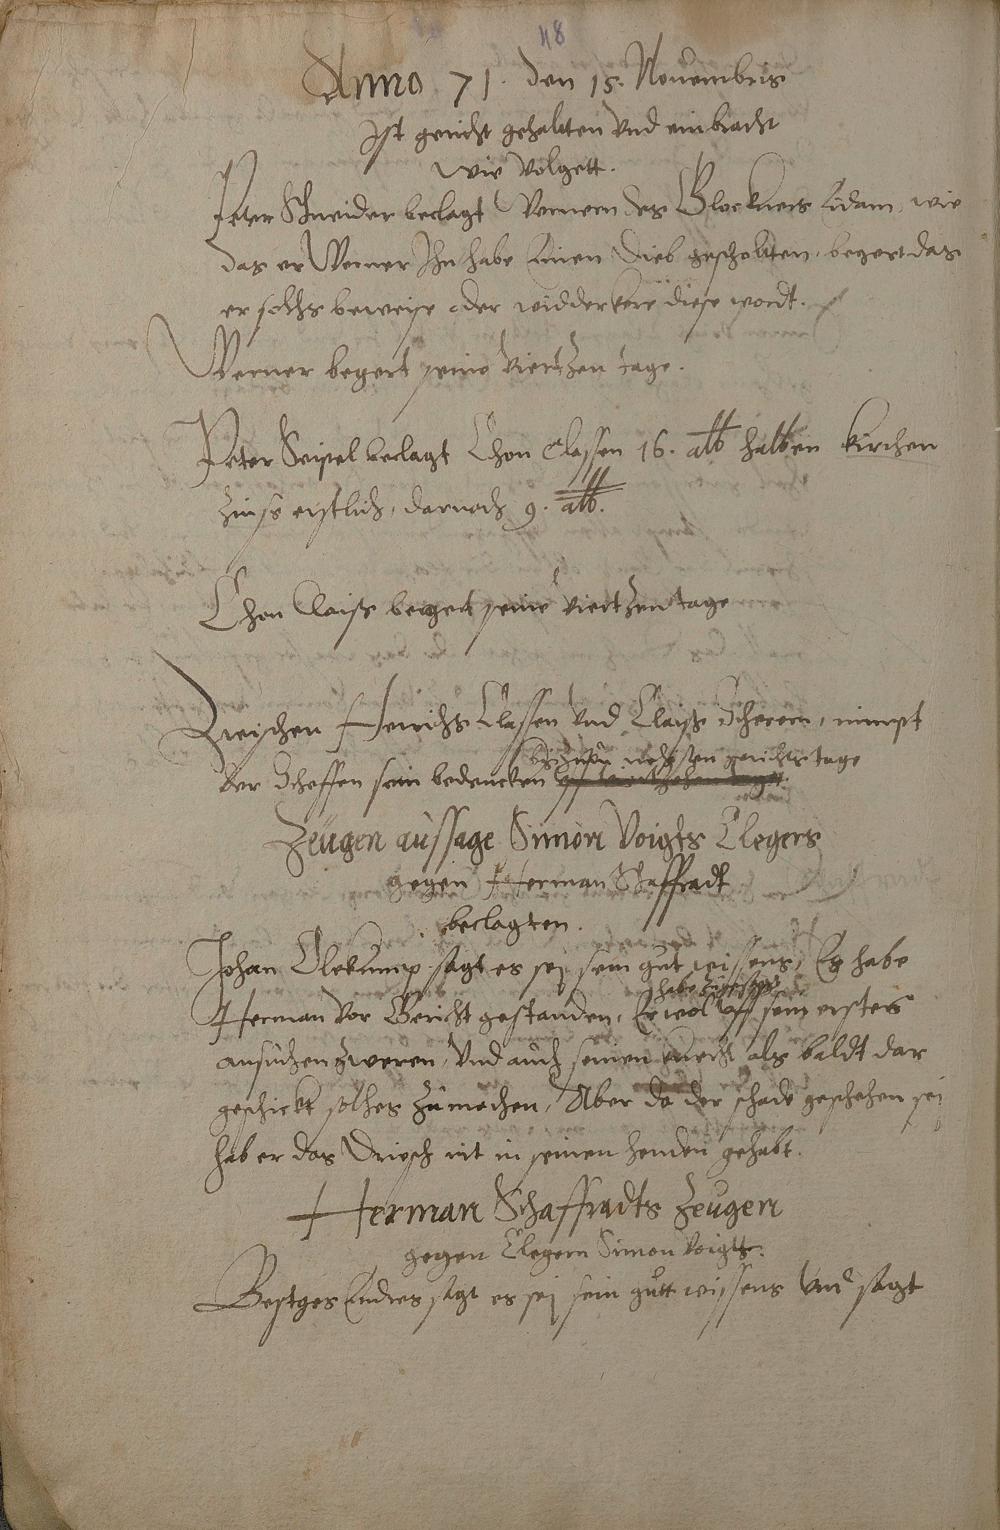 48
Anno 71. den 15. Nouembris
Ist gericht gehaltten vnd einbracht
wie volgett.
Peter Schneider beclagt Wernern des Glockners Eidam, wie
das er Werner Ihn habe Einen Dieb gescholtten, begert das
er solchs beweise oder widderkere diese wordt.
Werner begert seine viertzen tage.
Peter Seipel beclagt Chon Classen 16. alb halben kirchen
zinß erstlich, darnoch 9. alb.
Chon Claiß begert seine viertzen tage
Zwischen Henrichs Classen vnd Claiß Scherern, nimpt
bis zum nehsten gerichts tage
der Scheffen sein bedencken
Zeugen aussage Simon Voigts Clegers
gegen Herman Schaffradt
beclagten.
Johan Olekump sagt es sej sein gut wissens, Es habe
habe
Herman vor Gericht gestanden, Er wol uff sein erstes
ansuchen weren, Vnd auch seinen knecht als baldt dar
geschickt solches zu machen, Aber da der schade geschehen sej
hab er das Driesch nit in seinen henden gehabt.
Herman Schaffradts Zeugen
gegen Clegern Simon Voigtt.
Bestges Endres sagt es sej sein gutt wissens vnd sagt